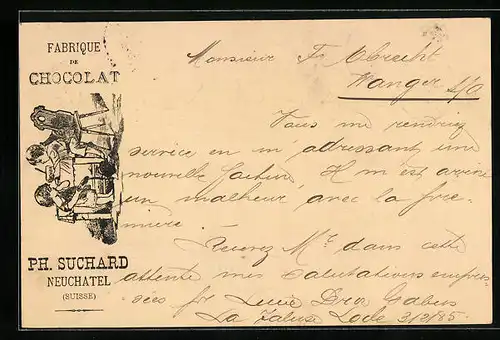 FABRIQUE
DE
CHOCOLAT
PH. SUCHARD
NEUCHATEL
(SUISSE)
Monsieur Fr. Obrecht
Wangen s/A
Vous me rendriez
service en m'adressant une
nouvelle facture, Il m'est arrivé
un malheur avec la pre-
mière.
Recevez Mr dans cette
attente mes salutations empres-
sées Lucie Droz
La Locle 3/2/85